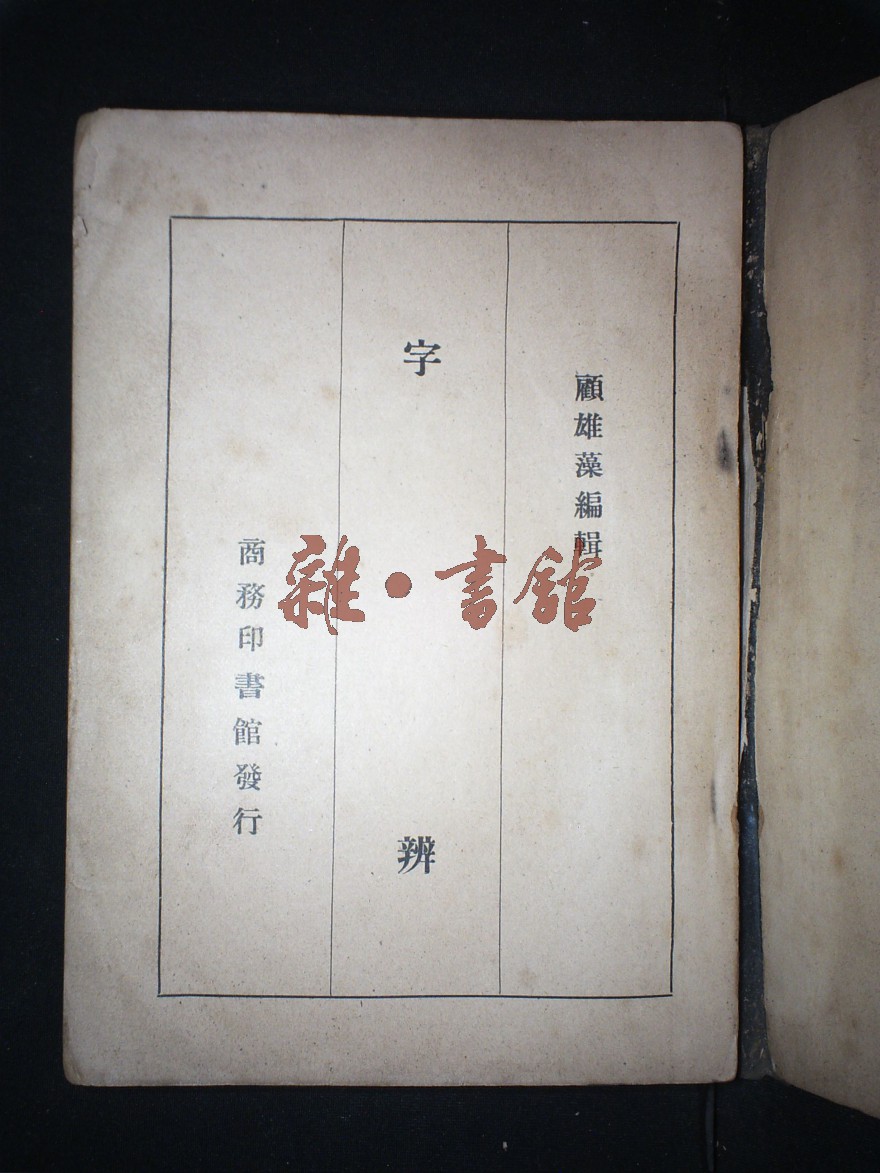 顧雄藻編輯
字辨
商務印書館發行
雜•書館